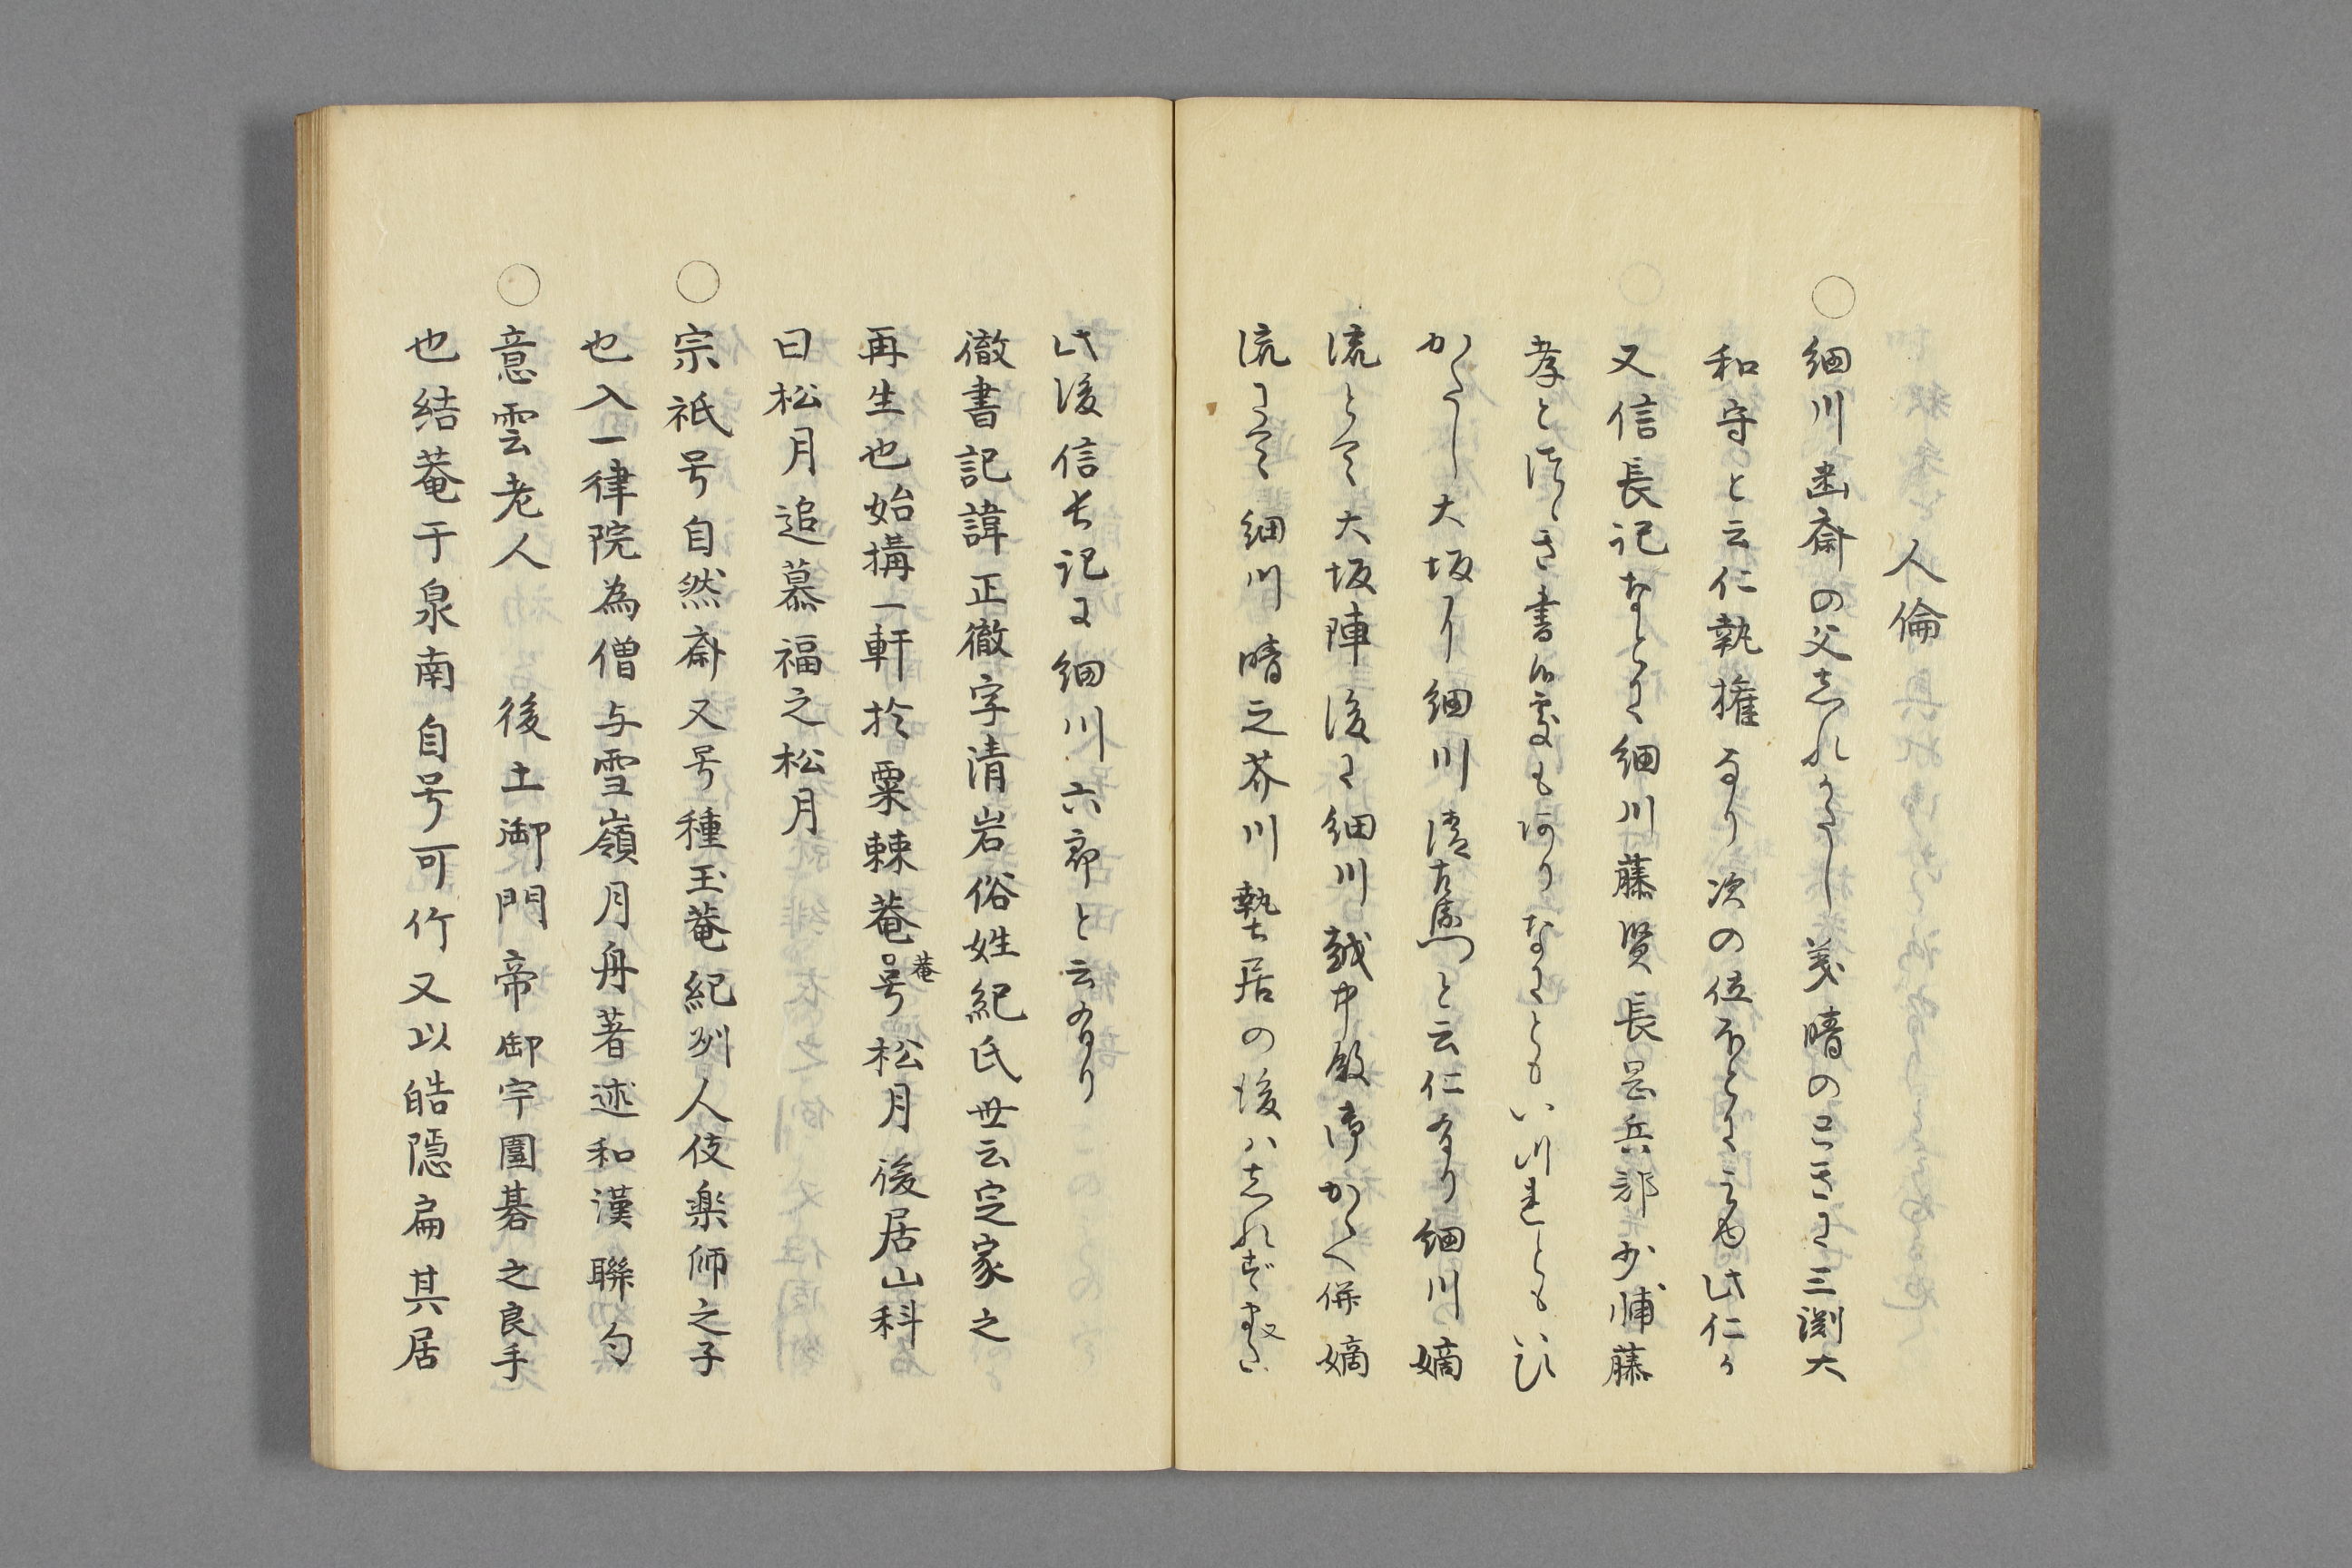 人倫
○細川幽斎の父志れかたし義晴のときに三渕大
和守と云仁執権なり次の位ほとにても此仁か
又信長記なとに細川藤賢長岡兵部少輔藤
孝とつゝき書処もありなにともいつれともいひ
かたし大坂に細川清左馬と云仁なり細川嫡
流とそ大坂陣後に細川越中殿御かゝへ併嫡
流にそ細川晴之芥川蟄居の後ハ志れす
此後信長記に細川六郎と云有り
徹書記諱正徹字清岩俗姓紀氏世云定家之
再生也始搆一軒於粟棘菴菴号松月後居山科
曰松月追慕福之松月
○宗祇号自然斎又号種玉菴紀州人伎楽師之子
也入一律院為僧与雪嶺月舟著述和漢聯句
○意雲老人 後土御門帝御宇圍碁之良手
也結菴于泉南自号可竹又以皓隠扁其居